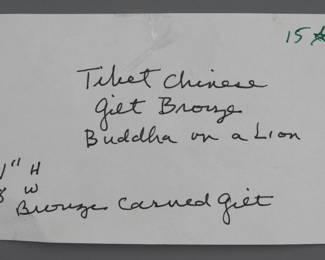 15
Tibet Chinese
Gilt Bronze
Buddha on a Lion
1" H
8 W
Bronze Carved Gilt